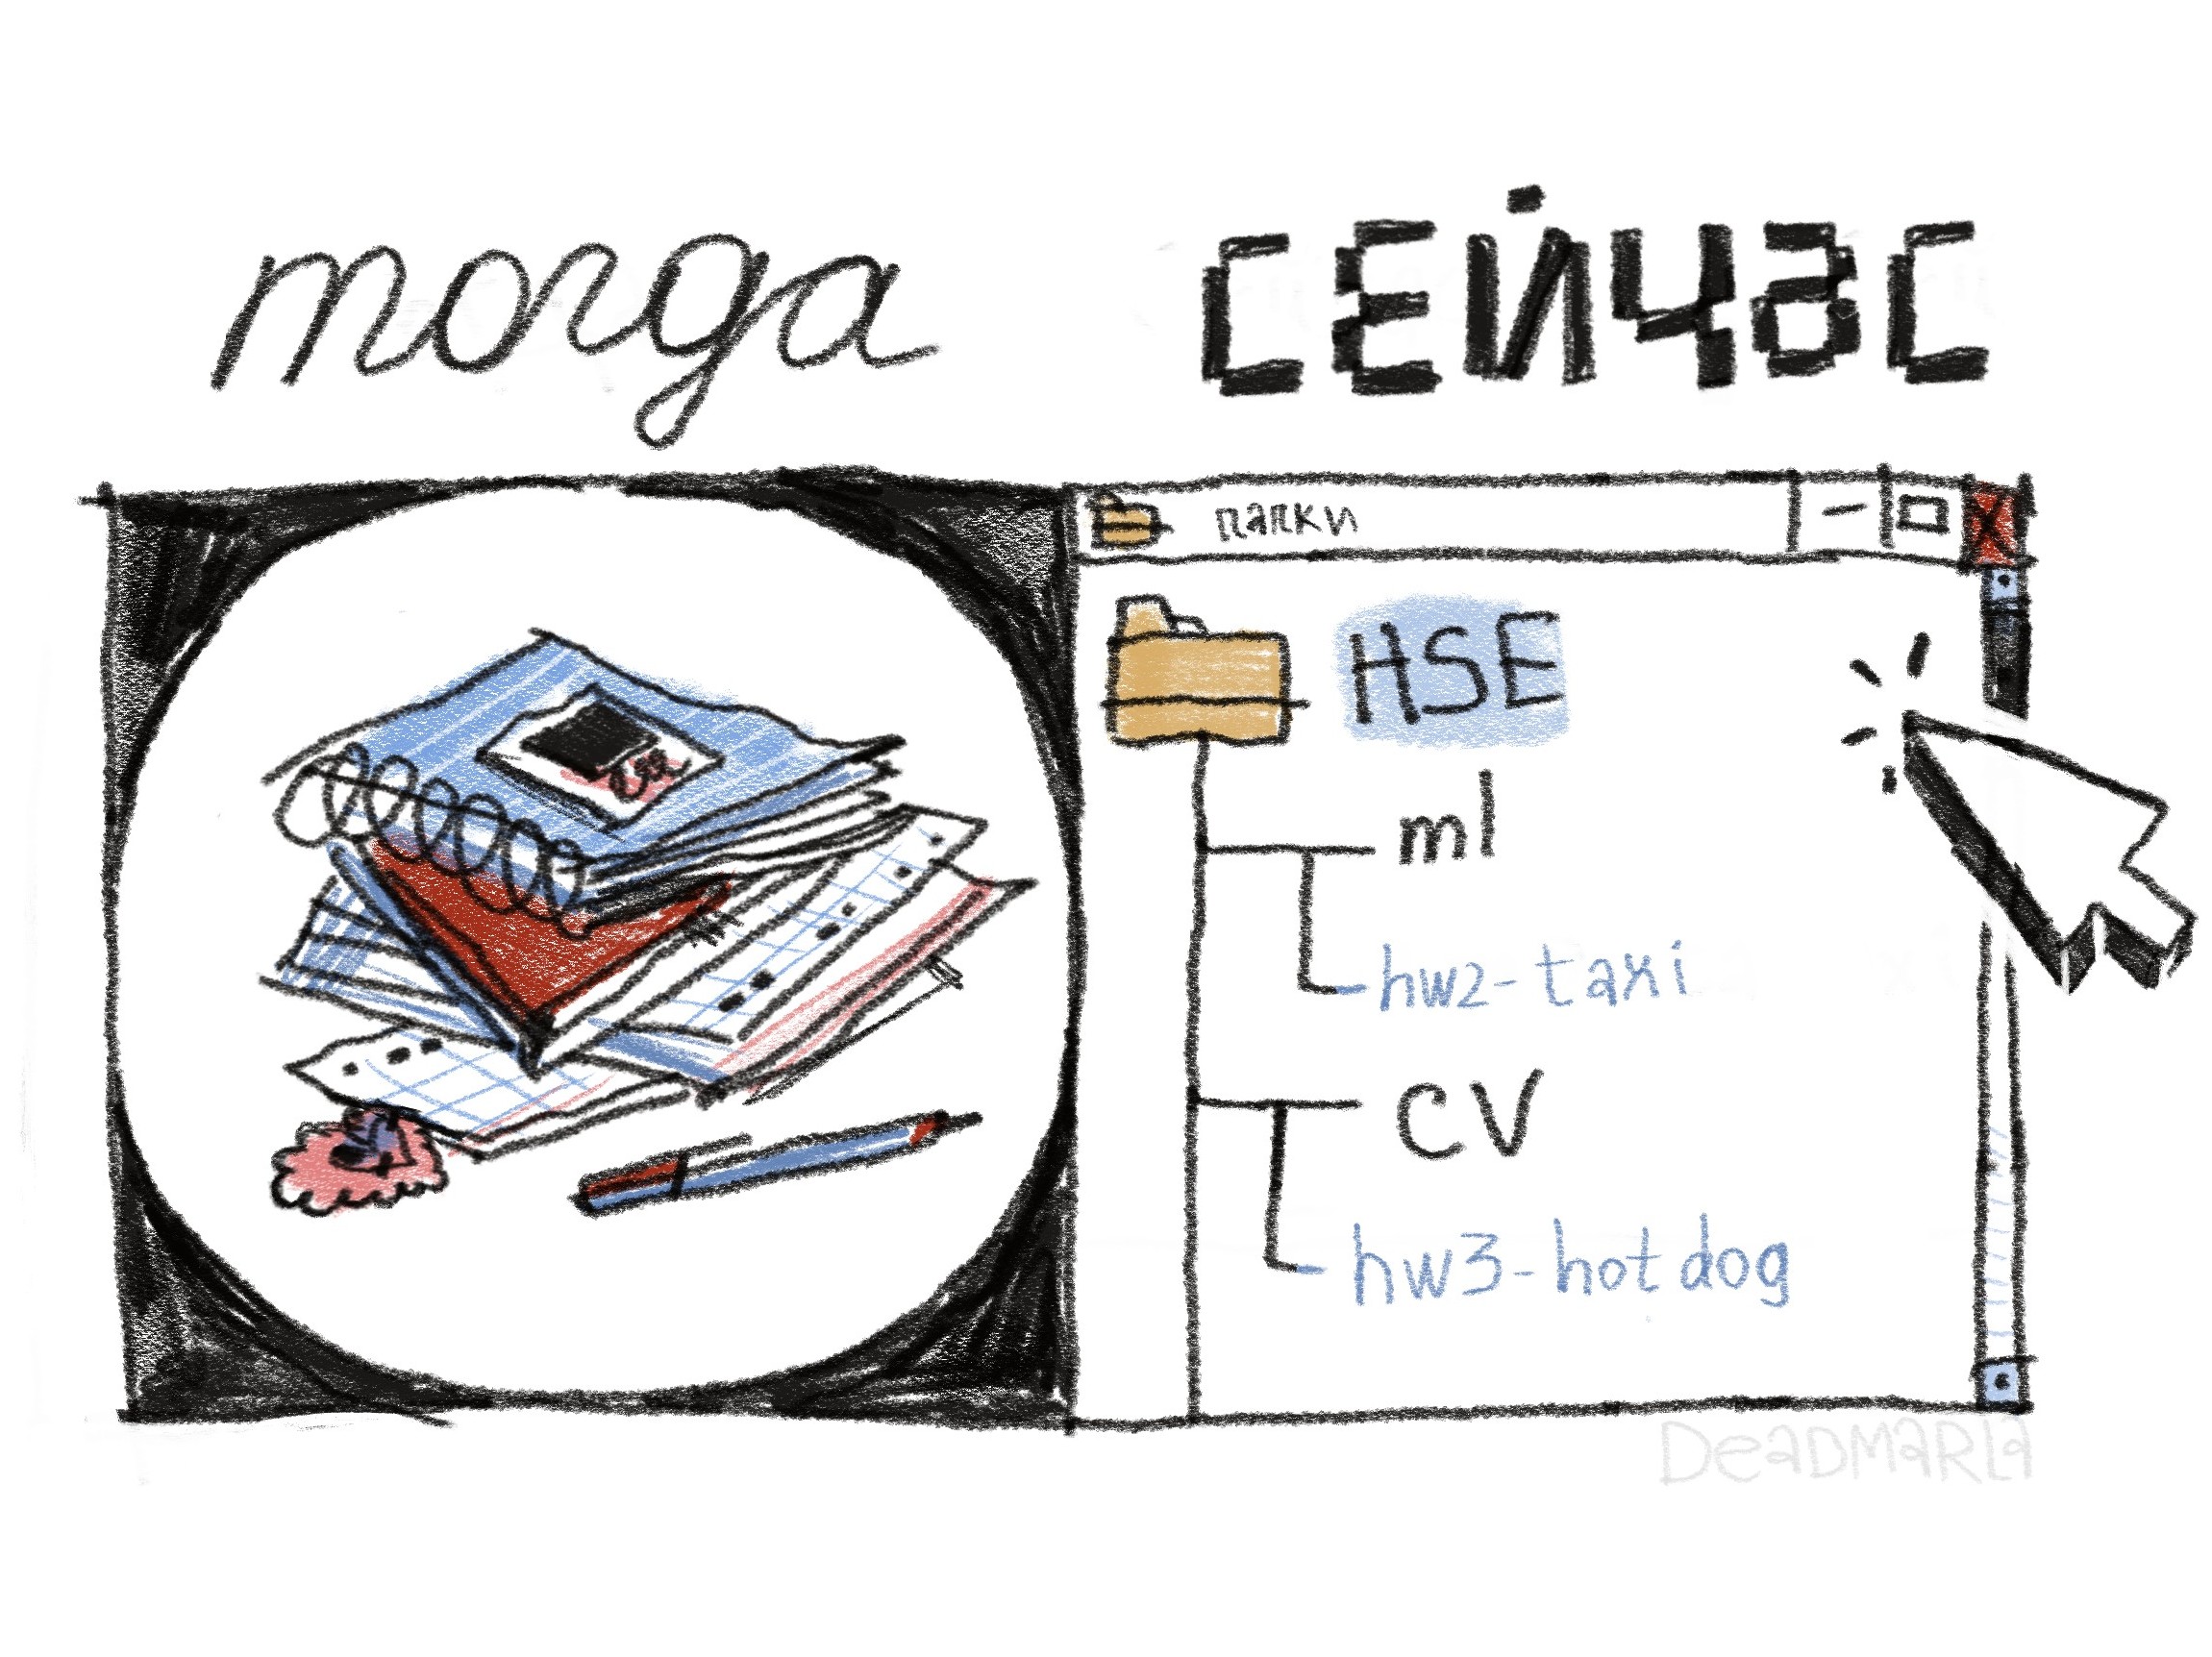 тогда
сейчас
папки
HSE
ml
hw2-taxi
CV
hw3-hotdog
DEADMARLA